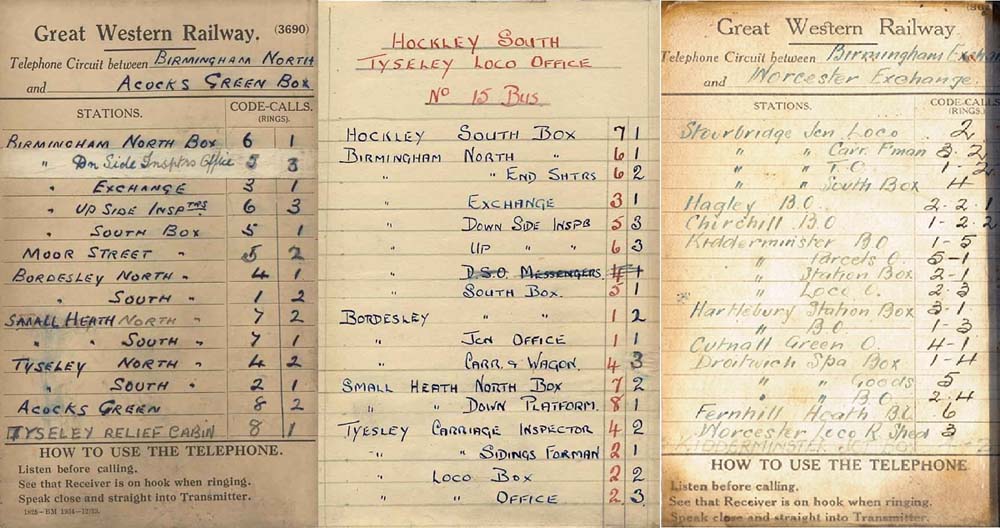 Great Western Railway. (3690)
Telephone Circuit between BIRMINGHAM NORTH
and ACOCKS GREEN BOX
STATIONS. CODE-CALLS.
(RINGS).
BIRMINGHAM NORTH BOX 6 1
" Dn Side Insptrs Office 5 3
" EXCHANGE 3 1
" UP SIDE INSPTRS 6 3
" SOUTH BOX 5 1
MOOR STREET " 5 2
BORDESLEY NORTH " 4 1
" SOUTH " 1 2
SMALL HEATH NORTH " 7 2
" " SOUTH " 7 1
TYSELEY NORTH " 4 2
" SOUTH " 2 1
ACOCKS GREEN 8 2
TYSELEY RELIEF CABIN 8 1
HOW TO USE THE TELEPHONE.
Listen before calling.
See that Receiver is on hook when ringing.
Speak close and straight into Transmitter.
HOCKLEY SOUTH
TYSELEY LOCO OFFICE
No 15 BUS
HOCKLEY SOUTH BOX 7 1
BIRMINGHAM NORTH " 6 1
" " END SHTRS 6 2
" EXCHANGE 3 1
" DOWN SIDE INSPB 5 3
" UP " " 6 3
" D.S.O. MESSENGERS 4 1
" SOUTH BOX. 5 1
BORDESLEY " " 1 2
" JCN OFFICE 1 1
" CARR. & WAGON. 4 3
SMALL HEATH NORTH BOX 7 2
" " DOWN PLATFORM. 8 1
TYESLEY CARRIAGE INSPECTOR 4 2
" SIDINGS FORMAN 2 1
" LOCO BOX 2 2
" " OFFICE 2 3
Great Western Railway.
Telephone Circuit between Birmingham Exch
and Worcester Exchange.
STATIONS. CODE-CALLS.
(RINGS).
Stourbridge Jcn Loco 2
" " Carr. Fman 3-2
" " T.O 1-2
" " South Box 4
Hagley B.O 2-2-1
Churchill B.O 1-2-2
Kidderminster B.O 1-5
" Parcels O. 5-1
" Station Box 2-1
" Loco O. 2-3
Hartlebury Station Box 3-1
" B.O 1-3
Cutnall Green O. 4-1
Droitwich Spa Box 1-4
" " Goods 5
" " B.O 2-4
Fernhill Heath B.O 6
Worcester Loco R Shed 3
KIDDERMINSTER
HOW TO USE THE TELEPHONE
Listen before calling.
See that Receiver is on hook when ringing.
Speak close and straight into Transmitter.